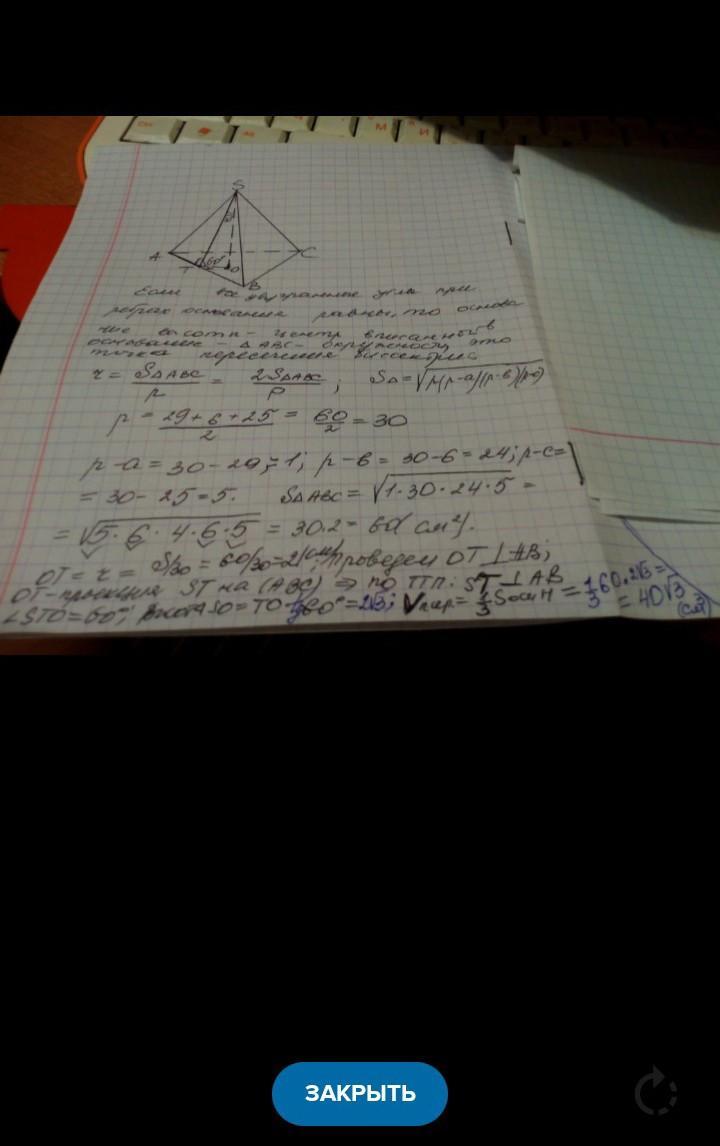 S
A
C
T
60°
O
B
Если все двугранные углы при
ребрах основания равны, то основа
ние высоты - центр вписанной в
основание - ΔABC - окружности, это
точка пересечения биссектрис
r = SΔABC/p = 2SΔABC/P ; SΔ = √p(p-a)(p-b)(p-c)
p = 29+6+25/2 = 60/2 = 30
p-a = 30-29=1; p-b = 30-6 = 24; p-c=
= 30 - 25 = 5. SΔABC = √1·30·24·5 =
= √5·6·4·6·5 = 30·2 = 60(см²).
OT = r = S/30 = 60/30 = 2(см); Проведем OT ⊥ AB;
OT-проекция ST на (ABC) ⇒ по ТТП: ST ⊥ AB
∠STO=60°; SO = TO 60° = 2√3; Vпир = 1/3 Sосн H = 1/3 60·2√3 =
= 40√3 (см³)
ЗАКРЫТЬ